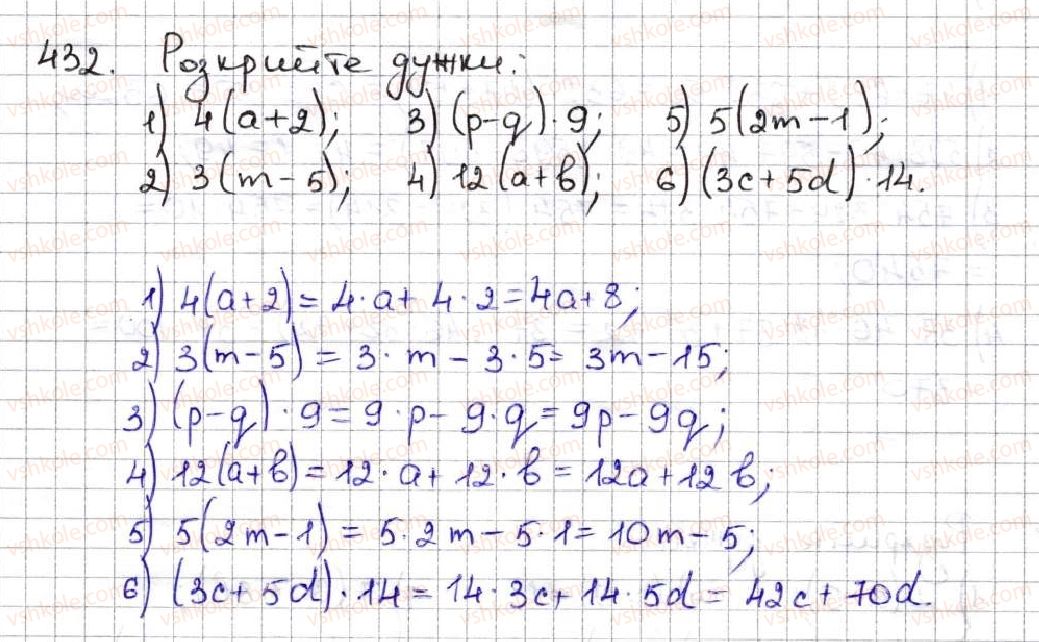 432. Розкрийте дужки:
1) 4(a+2); 3) (p-q)·9; 5) 5(2m-1);
2) 3(m-5); 4) 12(a+b); 6) (3c+5d)·14.
1) 4(a+2)=4·a+4·2=4a+8;
2) 3(m-5)=3·m-3·5=3m-15;
3) (p-q)·9=9·p-9·q=9p-9q;
4) 12(a+b)=12·a+12·b=12a+12b;
5) 5(2m-1)=5·2m-5·1=10m-5;
6) (3c+5d)·14=14·3c+14·5d=42c+70d.